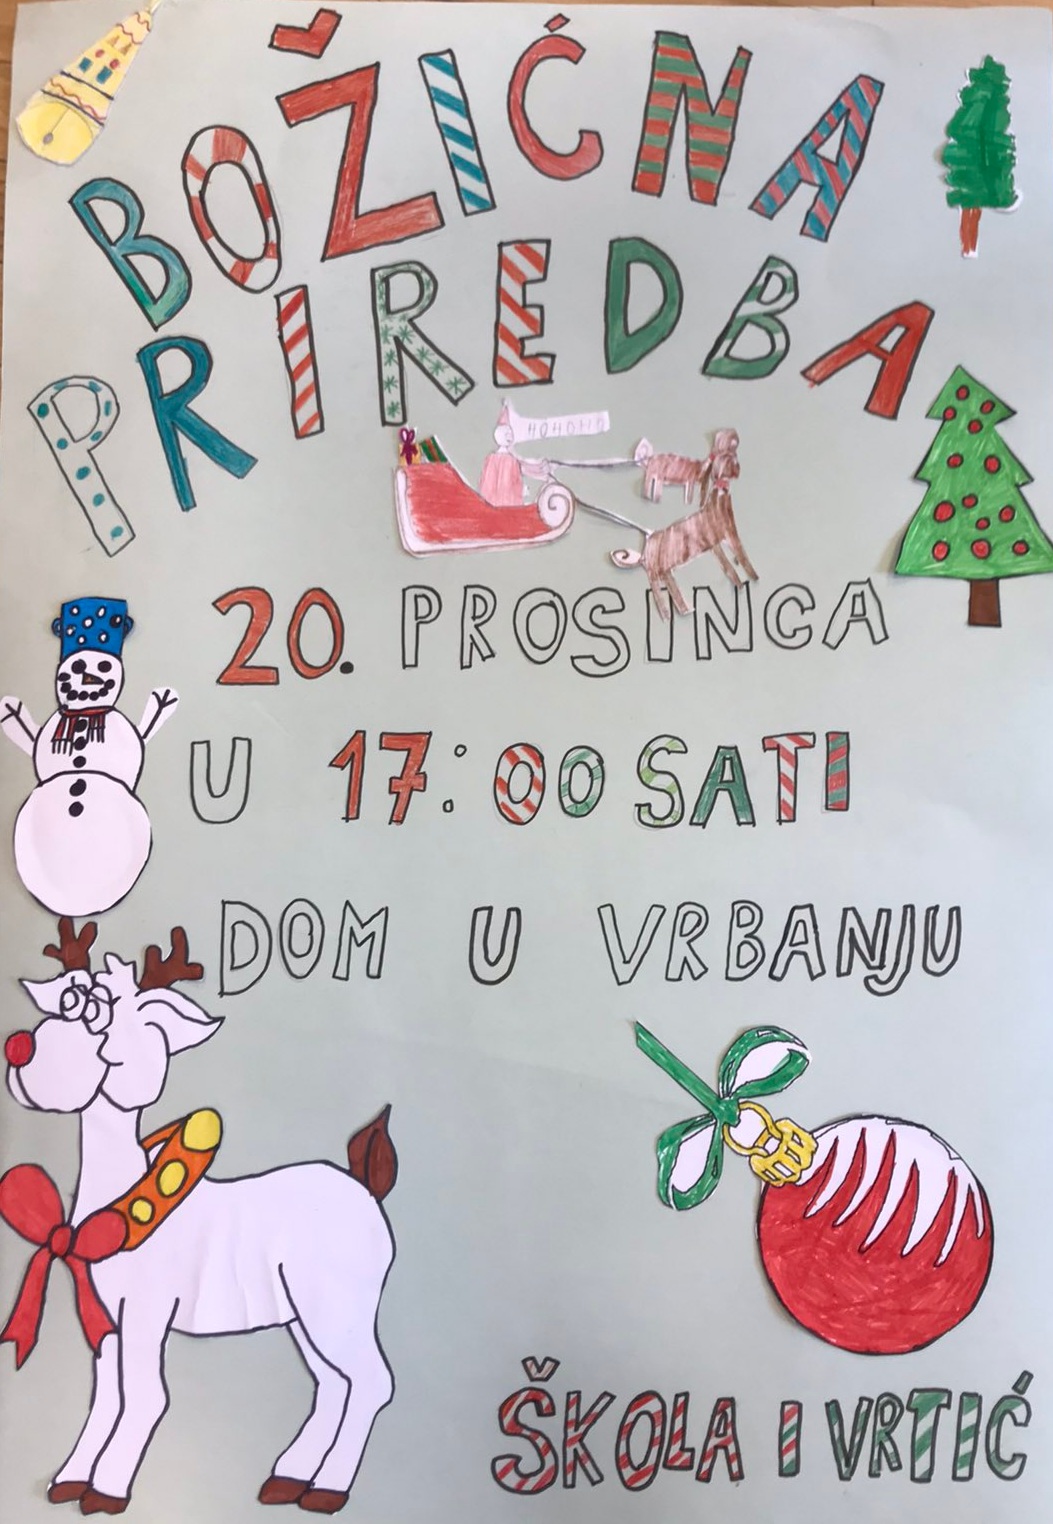 BOŽIĆNA
PRIREDBA
HOHOHO
20. PROSINCA
U 17:00 SATI
DOM U VRBANJU
ŠKOLA I VRTIĆ